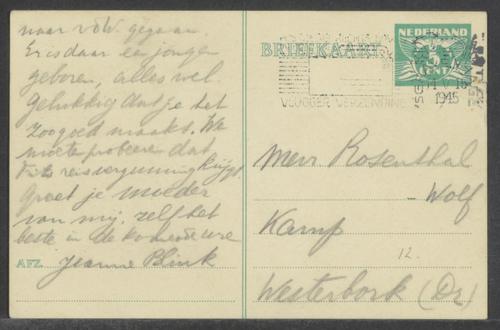 naar volw. gegaan.
Er is daar een jongen
geboren, alles wel.
Gelukkig dat je het
zoo goed maakt. We
moete probeeren dat
reisvergunning krijgt
Groet je moeder
van mij, zelf het
beste in de komende
AFZ. Jeanne Blink
NEDERLAND
BRIEFKAART
5
CENT
1945
VLUGGER VERZENDING
Mevr Rosenthal
- Wolf
Kamp
12.
Westerbork (Dr)